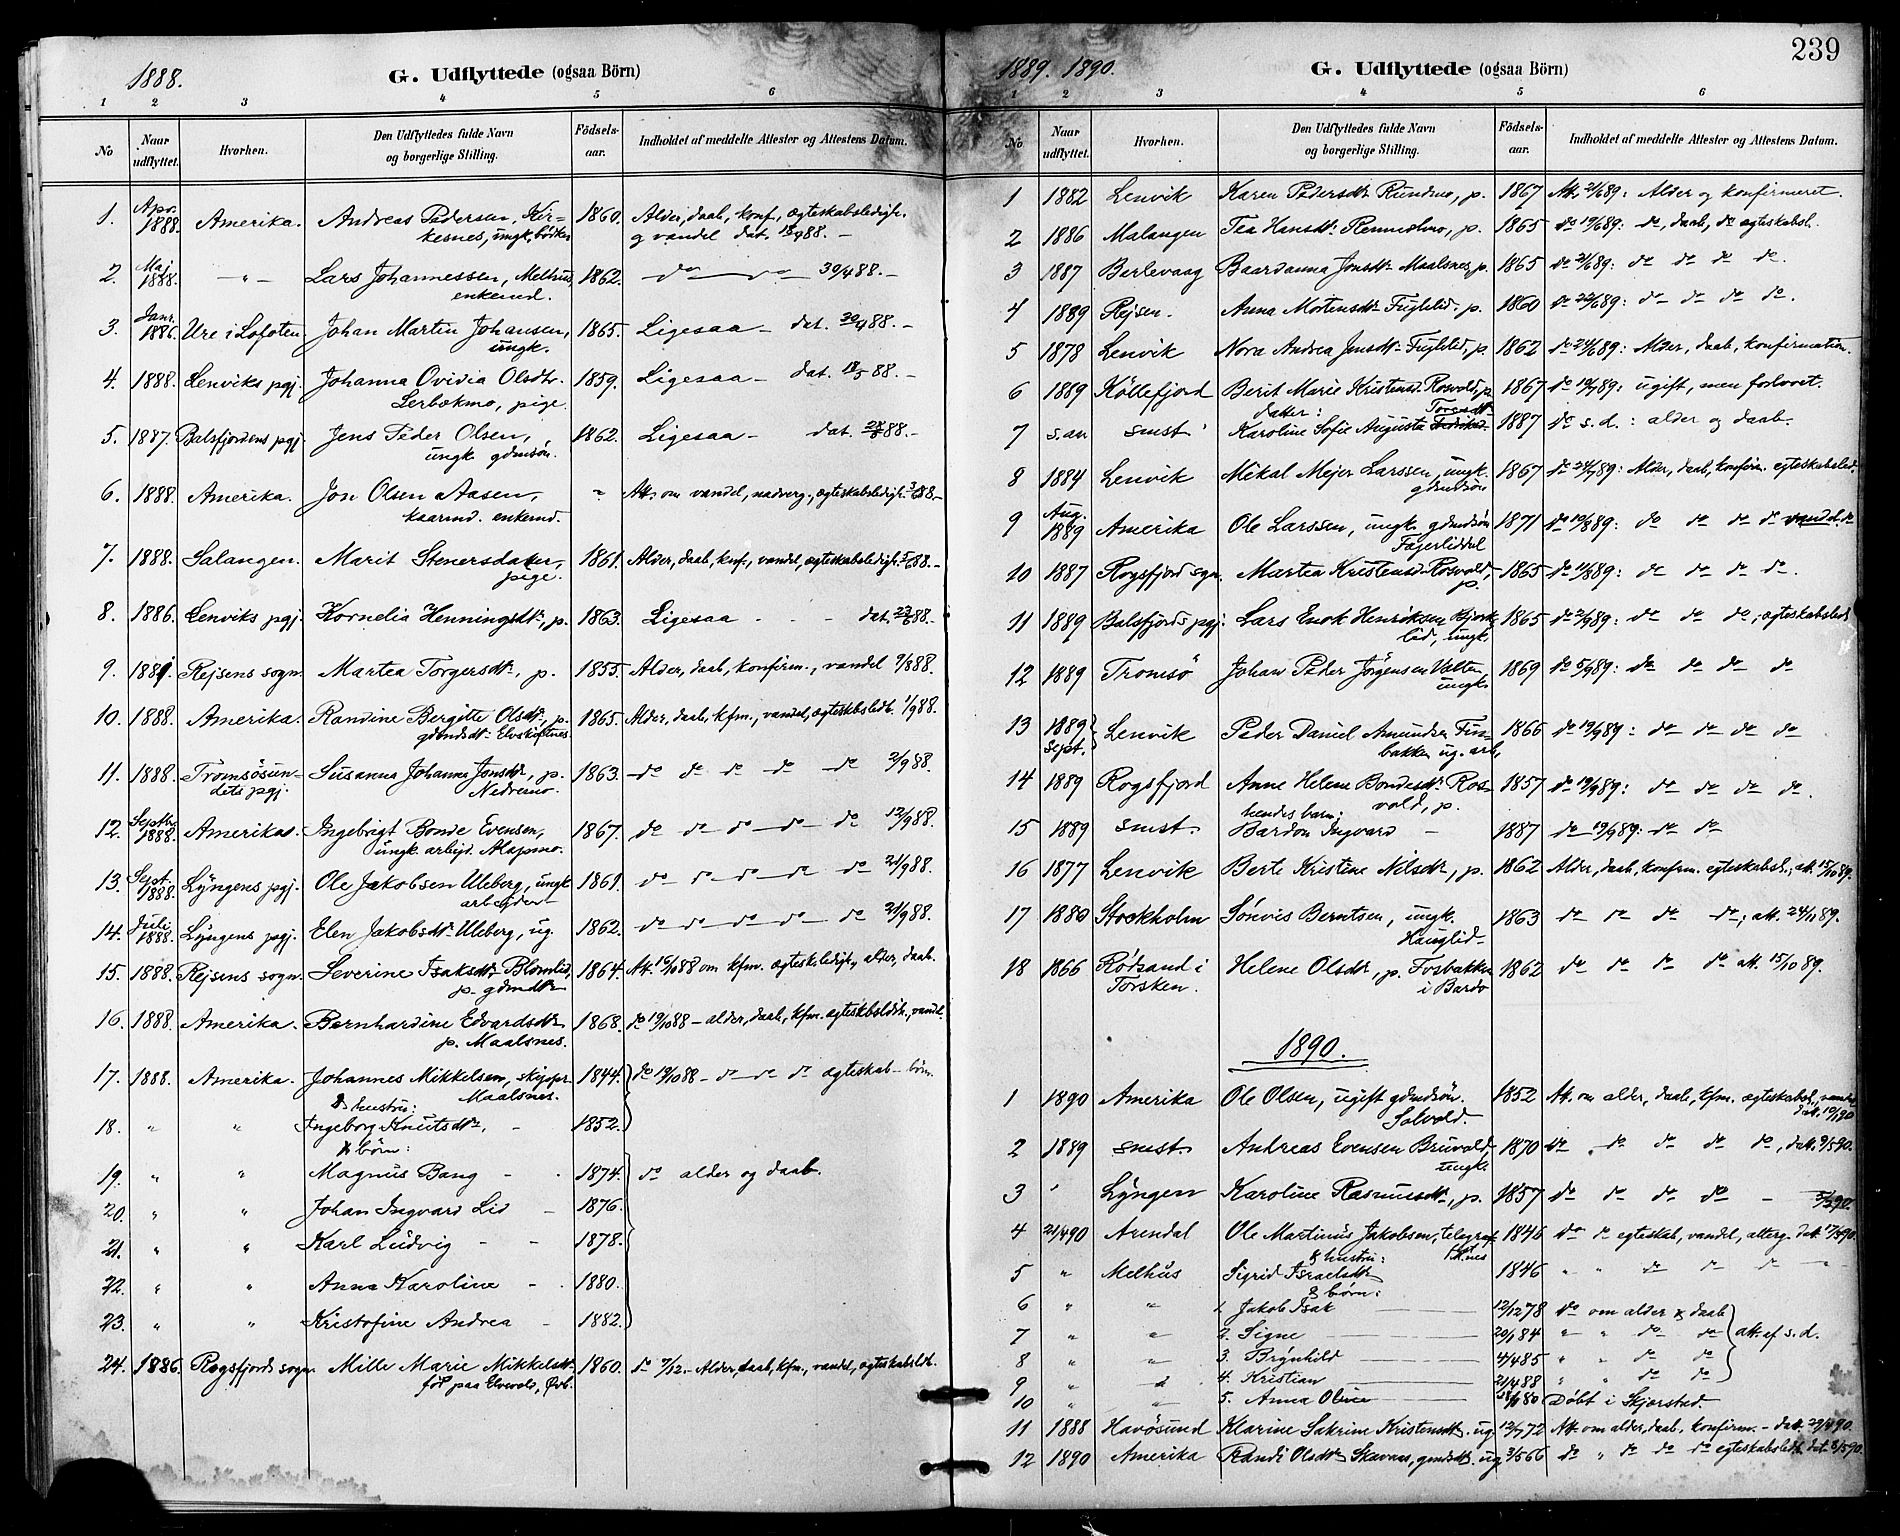 1888.
G. Udflyttede (ogsaa Börn)
1 2 3 4 5 6
No
Naar udflyttet.
Hvorhen.
Den Udflyttedes fulde Navn og borgerlige Stilling.
Födsels-aar.
Indholdet af meddelte Attester og Attestens Datum.
1. Apr. 1888. Amerika. Andreas Pedersen, Kir- 1860. Alder, daab, konf., ægteskabsledigh.
kesnes, ungk., og vandel dat. 88. –
2. Maj 1888. –"– Lars Johannessen, Melhus, 1862. do do 30/4 88. –
enkemd.
3. Janr. 1886. Ure i Lofoten. Johan Martin Johansen, 1865. Ligesaa – dat. 88. –
ungk.
4. 1888. Lenviks pgj. Johanna Ovidia Olsdtr. 1859. Ligesaa – dat. 88. –
Lerbækmo, pige.
5. 1887. Balsfjordens pgj. Jens Peder Olsen, 1862. Ligesaa – dat. 88. –
ungk. gdmsøn.
6. 1888. Amerika. Jon Olsen Aasen, " Att. om vandel, nadverg., ægteskabsledigh. 88. –
kaarmd. enkemd.
7. 1888. Salangen. Marit Stenersdatter, 1861. Alder, daab, knf., vandel, ægteskabsledigh. 88. –
pige.
8. 1886. Lenviks pgj. Kornelia Henningsdtr., p. 1863. Ligesaa – dat. 88. –
9. 1881. Rejsens sogn. Martea Torgersdtr., p. 1855. Alder, daab, konfirm., vandel 9/8 88.
10. 1888. Amerika. Randine Bergitte Olsdtr., p. 1865. Alder, daab, kfm., vandel, ægteskbsledh. 1/9 88.
gdmdsdtr. Elvskiftnes
11. 1888. Tromsösun- Susanna Johanna Jonsdtr., p. 1863. do do do do do 2/9 88.
dets pgj. Nedremo.
12. Septbr. 1888. Amerika. Ingebrigt Bonde Evensen, 1867. do do do do do 12/9 88.
ungk. arbejd. Alapmo.
13. Sept. 1888. Lyngens pgj. Ole Jakobsen Uleberg, ungk. 1861. do do do do do 21/9 88.
arbejder
14. Juli 1888. Lyngens pgj. Elen Jakobsdtr. Uleberg, ug. 1862. do do do do do 21/9 88.
15. 1888. Rejsens sogn. Severine Isaksdtr. Blomlid, 1864. Att. 10/10 88 om kfm. ægtesk.ledigh., alder, daab.
p. gdmdtr.
16. 1888. Amerika. Bernhardine Edvardsdtr. 1868. do 19/10 88 – alder, daab, kfm. ægteskbsldh., vandl.
p. Maalsnes.
17. 1888. Amerika. Johannes Mikkelsen, skippr. 1844. do 19/10 88 – do do do ægteskab – börn.
Maalsnes.
& hustru:
18. " " Ingeborg Knutsdtr. – 1852.
& börn:
19. " " Magnus Bang – 1874. do alder og daab.
20. " " Johan Ingvard Lid – 1876.
21. " " Karl Ludvig – – 1878.
22. " " Anna Karoline – 1880.
23. " " Kristofine Andrea – 1882.
24. 1886. Rogsfjords sogn. Mille Marie Mikkelsdtr. 1860. do 7/12. – Alder, daab, kfm., vandel, ægteskabsldh.
föt paa Elvevold, Övb.
239
1889. 1890.
G. Udflyttede (ogsaa Börn)
1 2 3 4 5 6
No
Naar udflyttet.
Hvorhen.
Den Udflyttedes fulde Navn og borgerlige Stilling.
Födsels-aar.
Indholdet af meddelte Attester og Attestens Datum.
1 1882 Lenvik Karen Pedersdtr. Rundmo, p. 1867 Att. 2/6 89: Alder og konfirmeret.
2 1886 Malangen Tea Hansdtr. Remmelmo, p. 1865 do 19/6 89: do, daab, do ægteskabsl.
3 1887 Berlevaag Baardanna Jonsdtr. Maalsnes, p. 1865 do 21/6 89: do do do do.
4 1889 Rejsen. Anna Mortensdtr. Fuglelid. p. 1860 do 22/6 89: do do do do.
5 1878 Lenvik Nora Andrea Jensdtr. Fuglelid, p 1862 do 24/6 89: Alder, daab, konfirmation.
6 1889 Köllefjord Berit Marie Kristensd. Rosvold, p. 1867 do 19/7 89: ugift, men forlovet.
datter: Toresdtr.
7 s. aar smst. Karoline Sofie Augusta 1887 do s. d.: alder og daab.
8 1884 Lenvik Mikal Mejer Larssen, ungk. 1867 do 24/7 89: Alder, daab, konfirm. egteskabsled.
gdmdsön
9 Aug. 1889 Amerika Ole Larssen, ungk. gdmdsön 1871 do 10/8 89: do do do do vandel do
Fagerliddel
10 1887 Rogsfjord sgn. Martea Kristensd. Rosvold, 1865 do 11/8 89: do do do do.
p.
11 1889 Balsfjords pgj. Lars Enok Henriksen Bjerk- 1865 do 2/9 89: do do do, ægteskabsled.
lid, ungk.
12 1889 Tromsö Johan Peder Jörgensen Valten 1869 do 5/9 89: do do do do
ungk.
13 1889 Sept. Lenvik Peder Daniel Amundsen Fus- 1866 do 19/9 89: do do do do
bakken ug. arb.
14 1889 Rogsfjord Anne Helene Bondesdtr. Ros- 1857 do 19/9 89: do do do do.
vold, p.
hendes barn:
15 1889 smst. Bardon Ingvard – 1887 do 19/9 89: do do
16 1877 Lenvik Berte Kristine Nilsdtr., p. 1862 Alder, daab, konfirm. egteskabsl., att. 15/10 89.
17 1880 Stockholm Sönvis Berntsen, ungk. 1863 do do do do; att. 24/11 89.
Hauglid
18 1866 Rödsand i Helene Olsdtr., p. Fosbakken 1862 do do do do att. 15/10 89.
Torsken. i Bardo
1890.
1 1890 Amerika Ole Olsen, ugift gdmdsön. 1852 Att. om alder, daab, kfm. ægteskabsl., vandel
Solvold. datt. 10/1 90
2 1889 smst. Andreas Evensen Bruvold, 1870 do do do do do, datt. 9/5 90.
ungk.
3 ' Lyngen Karoline Rasmusdtr., p. 1857 do do do do – 90.
4 21/4 90 Arendal Ole Martinus Jakobsen, telegraf 1846 do do egteskab, vandel, alterg. datt. 17/3 90.
& hustru:
5 " Melhus Sigrid Israelsdtr. 1846 " " do do do
& börn:
6 " " 1. Jakob Isak 12/12 78 do om alder & daab
7 " " 2. Signe 20/1 84 " " do do att. af s. d.
8 " " 3. Brynhild 4/4 85 " " do do
9 " " 4. Kristian 21/4 88 " " do do
10 " " 5. Anna Olive 80 Döbt i Skjerstad.
11 1888 Havösund Klarine Sakrine Kristensdtr. ug 12/7 72 Att. om alder, daab, konfirm. – datt. 29/4 90.
12 1890 Amerika Randi Olsdtr. Skavaas, gmdsdtr. ug 3/5 66 do " do do do egteskabsledh. dat. 8/5 90.